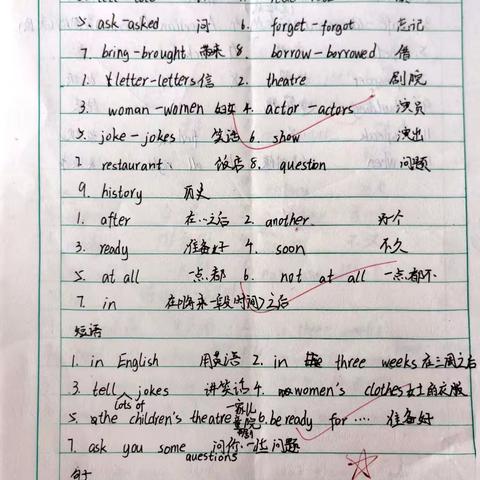 5. ask-asked 问 6. forget-forgot 忘记
7. bring-brought 带来 8. borrow-borrowed 借
1. letter-letters 信 2. theatre 剧院
3. woman-women 妇女 4. actor-actors 演员
5. joke-jokes 笑话 6. show 演出
7. restaurant 饭店 8. question 问题
9. history 历史
1. after 在…之后 2. another 另个
3. ready 准备好 4. soon 不久
5. at all 一点都 6. not at all 一点都不
7. in 在(将来一段时间)之后
短语
1. in English 用英语 2. in three weeks 在三周之后
3. tell lots of jokes 讲笑话 4. women's clothes 女士的衣服
5. the children's theatre 儿童剧院 6. be ready for …. 准备好
7. ask you some questions 问你一些问题
句子